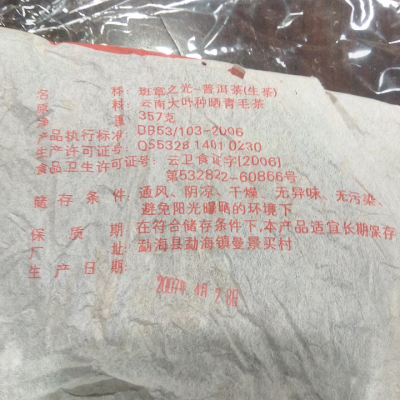 名 称: 班章之光-普洱茶(生茶)
原 料: 云南大叶种晒青毛茶
净 重: 357克
产品执行标准: DB53/103-2006
生产许可证号: QS5328 1401 0230
食品卫生许可证号: 云卫食证字[2006]
第532822-60866号
储存条件: 通风、阴凉、干燥、无异味、无污染、
避免阳光曝晒的环境下
保 质 期: 在符合储存条件下,本产品适宜长期保存
厂 址: 勐海县勐海镇曼景买村
生产日期:
2007年 4月 28日